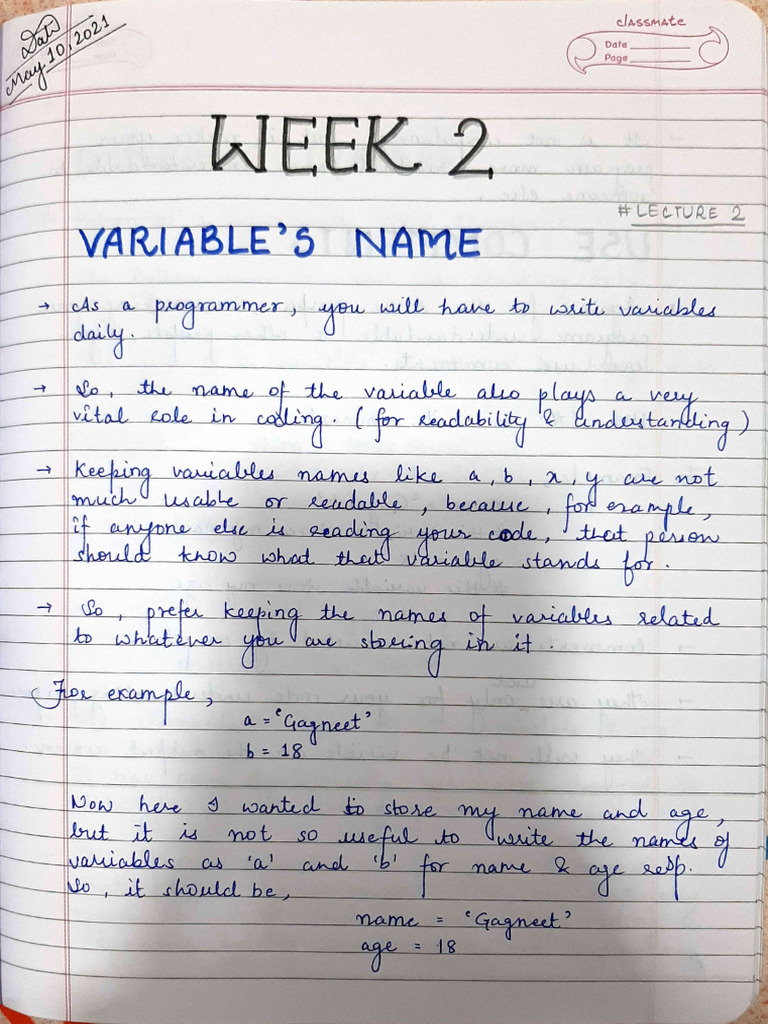 Date
May 10, 2021
classmate
Date
Page
WEEK 2
# LECTURE 2
VARIABLE'S NAME
→ As a programmer, you will have to write variables
daily.
→ So, the name of the variable also plays a very
vital role in coding. (for readability & understanding)
→ Keeping variables names like a, b, x, y are not
much usable or readable, because, for example,
if anyone else is reading your code, that person
should know what that variable stands for.
→ So, prefer keeping the names of variables related
to whatever you are storing in it.
For example,
a = 'Gagneet'
b = 18
Now here I wanted to store my name and age,
but it is not so useful to write the names of
variables as 'a' and 'b' for name & age resp.
So, it should be,
name = 'Gagneet'
age = 18